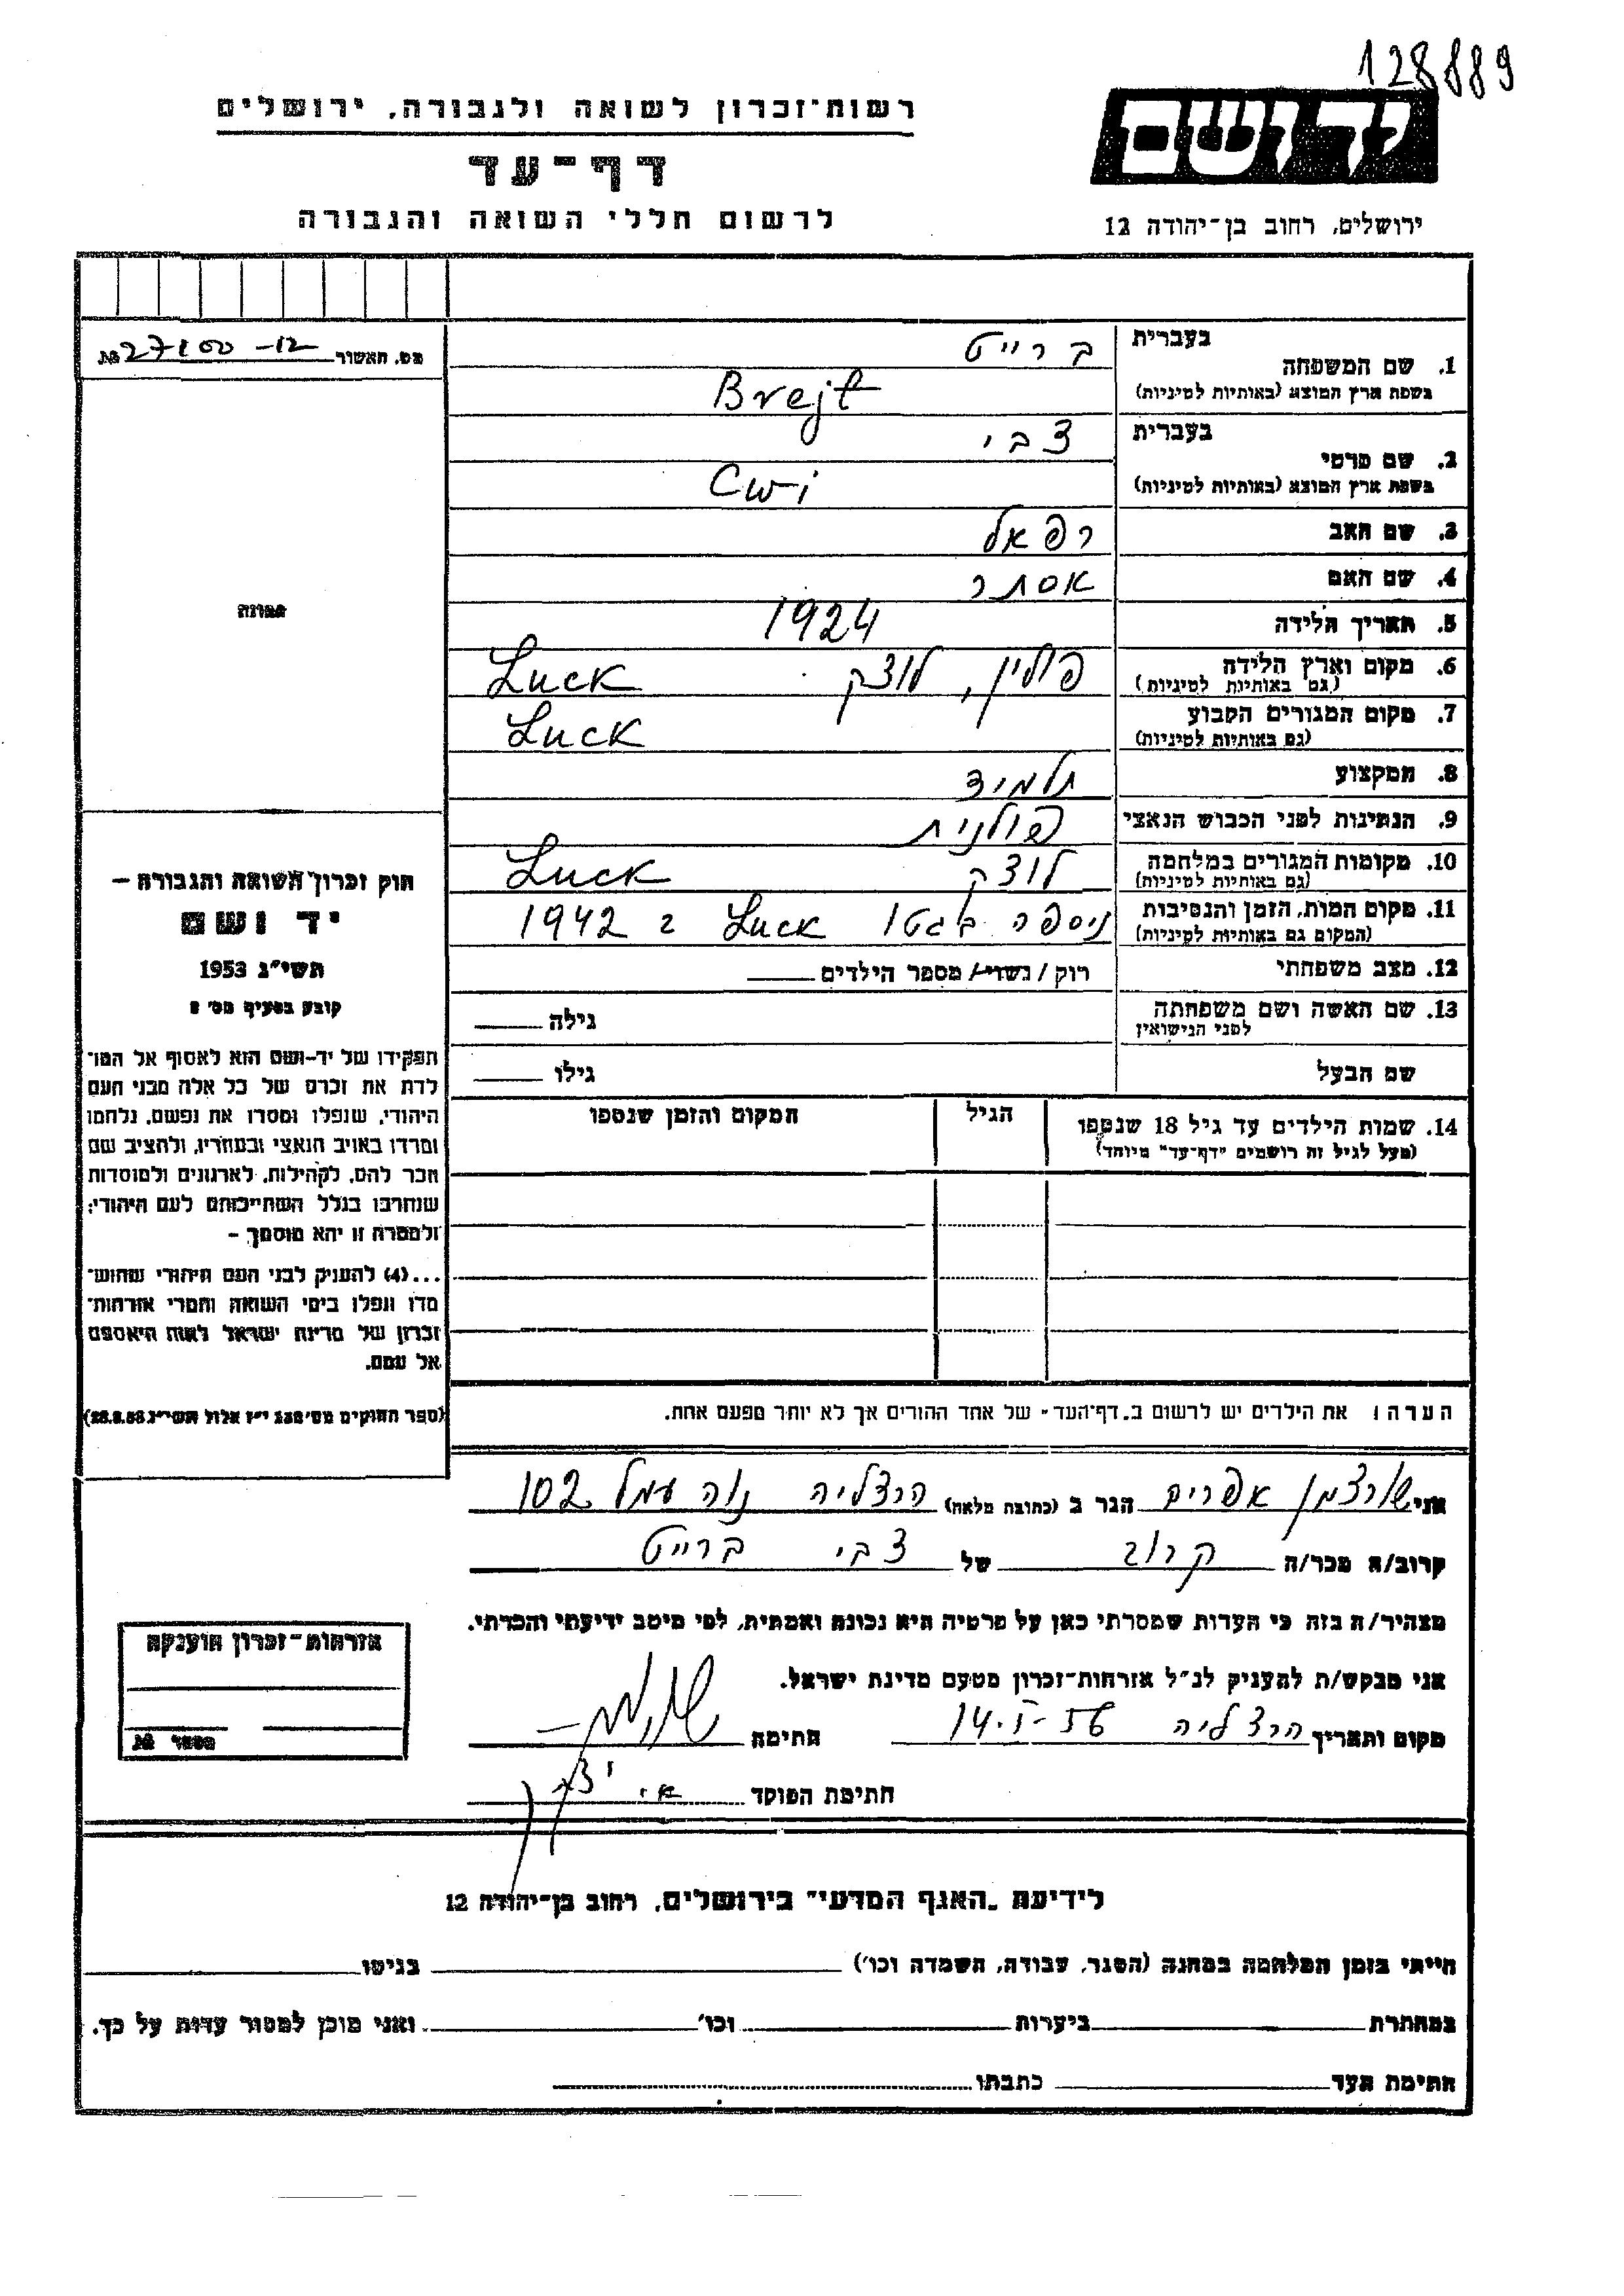 128889
יד ושם
רשות־זכרון לשואה ולגבורה, ירושלים
דף־עד
לרשום חללי השואה והגבורה
ירושלים, רחוב בן־יהודה 12
מס. תאשור 27100-12 №
1. שם המשפחה בעברית ברייט
בשפת ארץ המוצא (באותיות לטיניות) Brejt
2. שם פרטי בעברית צבי
בשפת ארץ המוצא (באותיות לטיניות) Cwi
3. שם האב רפאל
4. שם האם אסתר
5. תאריך הלידה 1924
6. מקום וארץ הלידה (גם באותיות לטיניות) פולין, לוצק Luck
7. מקום המגורים הקבוע (גם באותיות לטיניות) Luck
8. המקצוע תלמיד
9. הנתינות לפני הכבוש הנאצי פולנית
10. מקומות המגורים במלחמה (גם באותיות לטיניות) לוצק Luck
11. מקום המות, הזמן והנסיבות (המקום גם באותיות לטיניות) ניספה בגטו Luck ב 1942
12. מצב משפחתי רווק / נשוי / מספר הילדים
13. שם האשה ושם משפחתה לפני הנישואין גילה
שם הבעל גילו
14. שמות הילדים עד גיל 18 שנספו הגיל המקום והזמן שנספו
(מעל לגיל זה רושמים "דף־עד" מיוחד)
תמונה
חוק זכרון השואה והגבורה –
יד ושם
תשי"ג 1953
קובע בסעיף מס' 2
תפקידו של יד-ושם הוא לאסוף אל המו־
לדת את זכרם של כל אלה מבני העם
היהודי, שנפלו ומסרו את נפשם, נלחמו
ומרדו באויב הנאצי ובעוזריו, ולהציב שם
וזכר להם, לקהילות, לארגונים ולמוסדות
שנחרבו בגלל השתייכותם לעם היהודי;
ולמטרה זו יהא מוסמך –
...(4) להעניק לבני העם היהודי שהוש־
מדו ונפלו בימי השואה והמרי אזרחות־
זכרון של מדינת ישראל לאות היאספם
אל עמם.
(ספר החוקים מס' 132 י"ז אלול תשי"ג 28.8.53)
הערה: את הילדים יש לרשום ב"דף־העד" של אחד ההורים אך לא יותר מפעם אחת.
אני שורצמן אפרים הגר ב (כתובת מלאה) הרצליה נוה עמל 102
קרוב/ה מכר/ה קרוב של צבי ברייט
מצהיר/ה בזה כי העדות שמסרתי כאן על פרטיה היא נכונה ואמתית, לפי מיטב ידיעתי והכרתי.
אני מבקש/ת להעניק לנ"ל אזרחות־זכרון מטעם מדינת ישראל.
מקום ותאריך הרצליה 14.I-56 חתימה
חתימת הפוקד
אזרחות־זכרון הוענקה
מספר №
לידיעת "האגף המדעי" בירושלים, רחוב בן־יהודה 12
הייתי בזמן המלחמה במחנה (הסגר, עבודה, השמדה וכו') בגיטו
במחתרת ביערות וכו' ואני מוכן למסור עדות על כך.
חתימת העד כתבתו